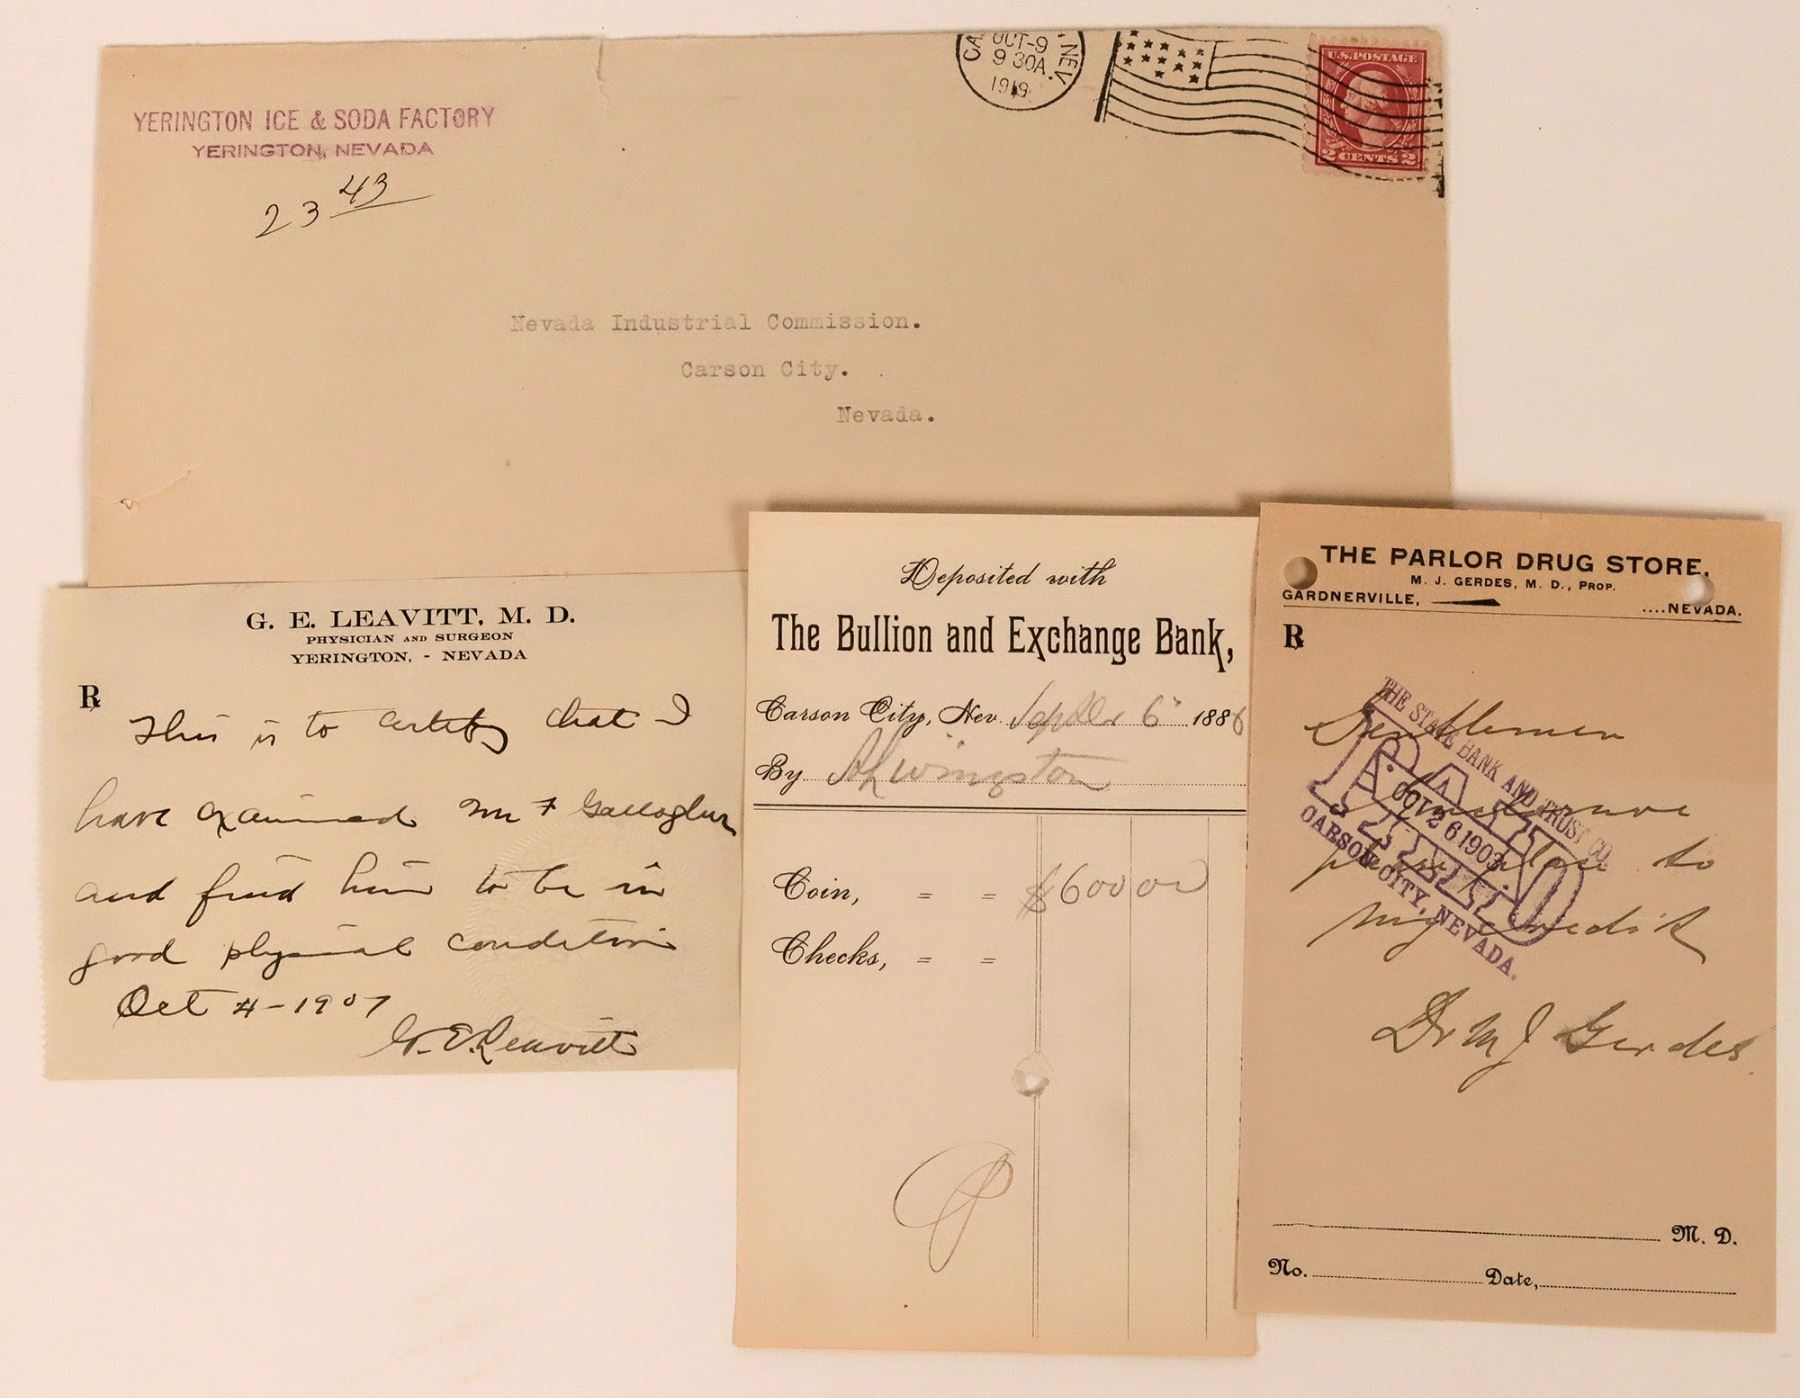 YERINGTON ICE & SODA FACTORY
YERINGTON, NEVADA
23 43
OCT-9
9 30A.
1919
NEV.
U.S. POSTAGE
2 CENTS 2
Nevada Industrial Commission.
Carson City.
Nevada.
G. E. LEAVITT, M. D.
PHYSICIAN AND SURGEON
YERINGTON, - NEVADA
℞
This is to certify that I
have examined Mr F Gallagher
and find him to be in
good physical condition
Oct 4-1907
G.E. Leavitt
Deposited with
The Bullion and Exchange Bank,
Carson City, Nev. 6" 1886
By Livingston
Coin, = = $600 00
Checks, = =
THE PARLOR DRUG STORE.
M. J. GERDES, M. D., PROP.
GARDNERVILLE, ....NEVADA.
℞
Gentlemen
please to
my credit
Dr M J Gerdes
THE STATE BANK AND TRUST CO.
PAID
OCT 26 1903
CARSON CITY, NEVADA.
M. D.
No. Date,